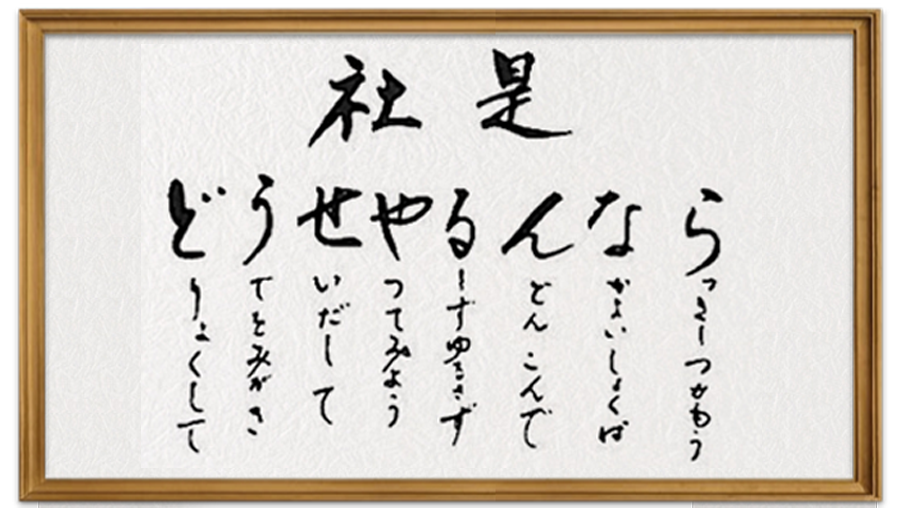 社是
どうせやるんなら
りょくして
でをみがき
いだして
ってみよう
ーずゆるさず
どんこんで
かよいしょくば
っきーつかもう